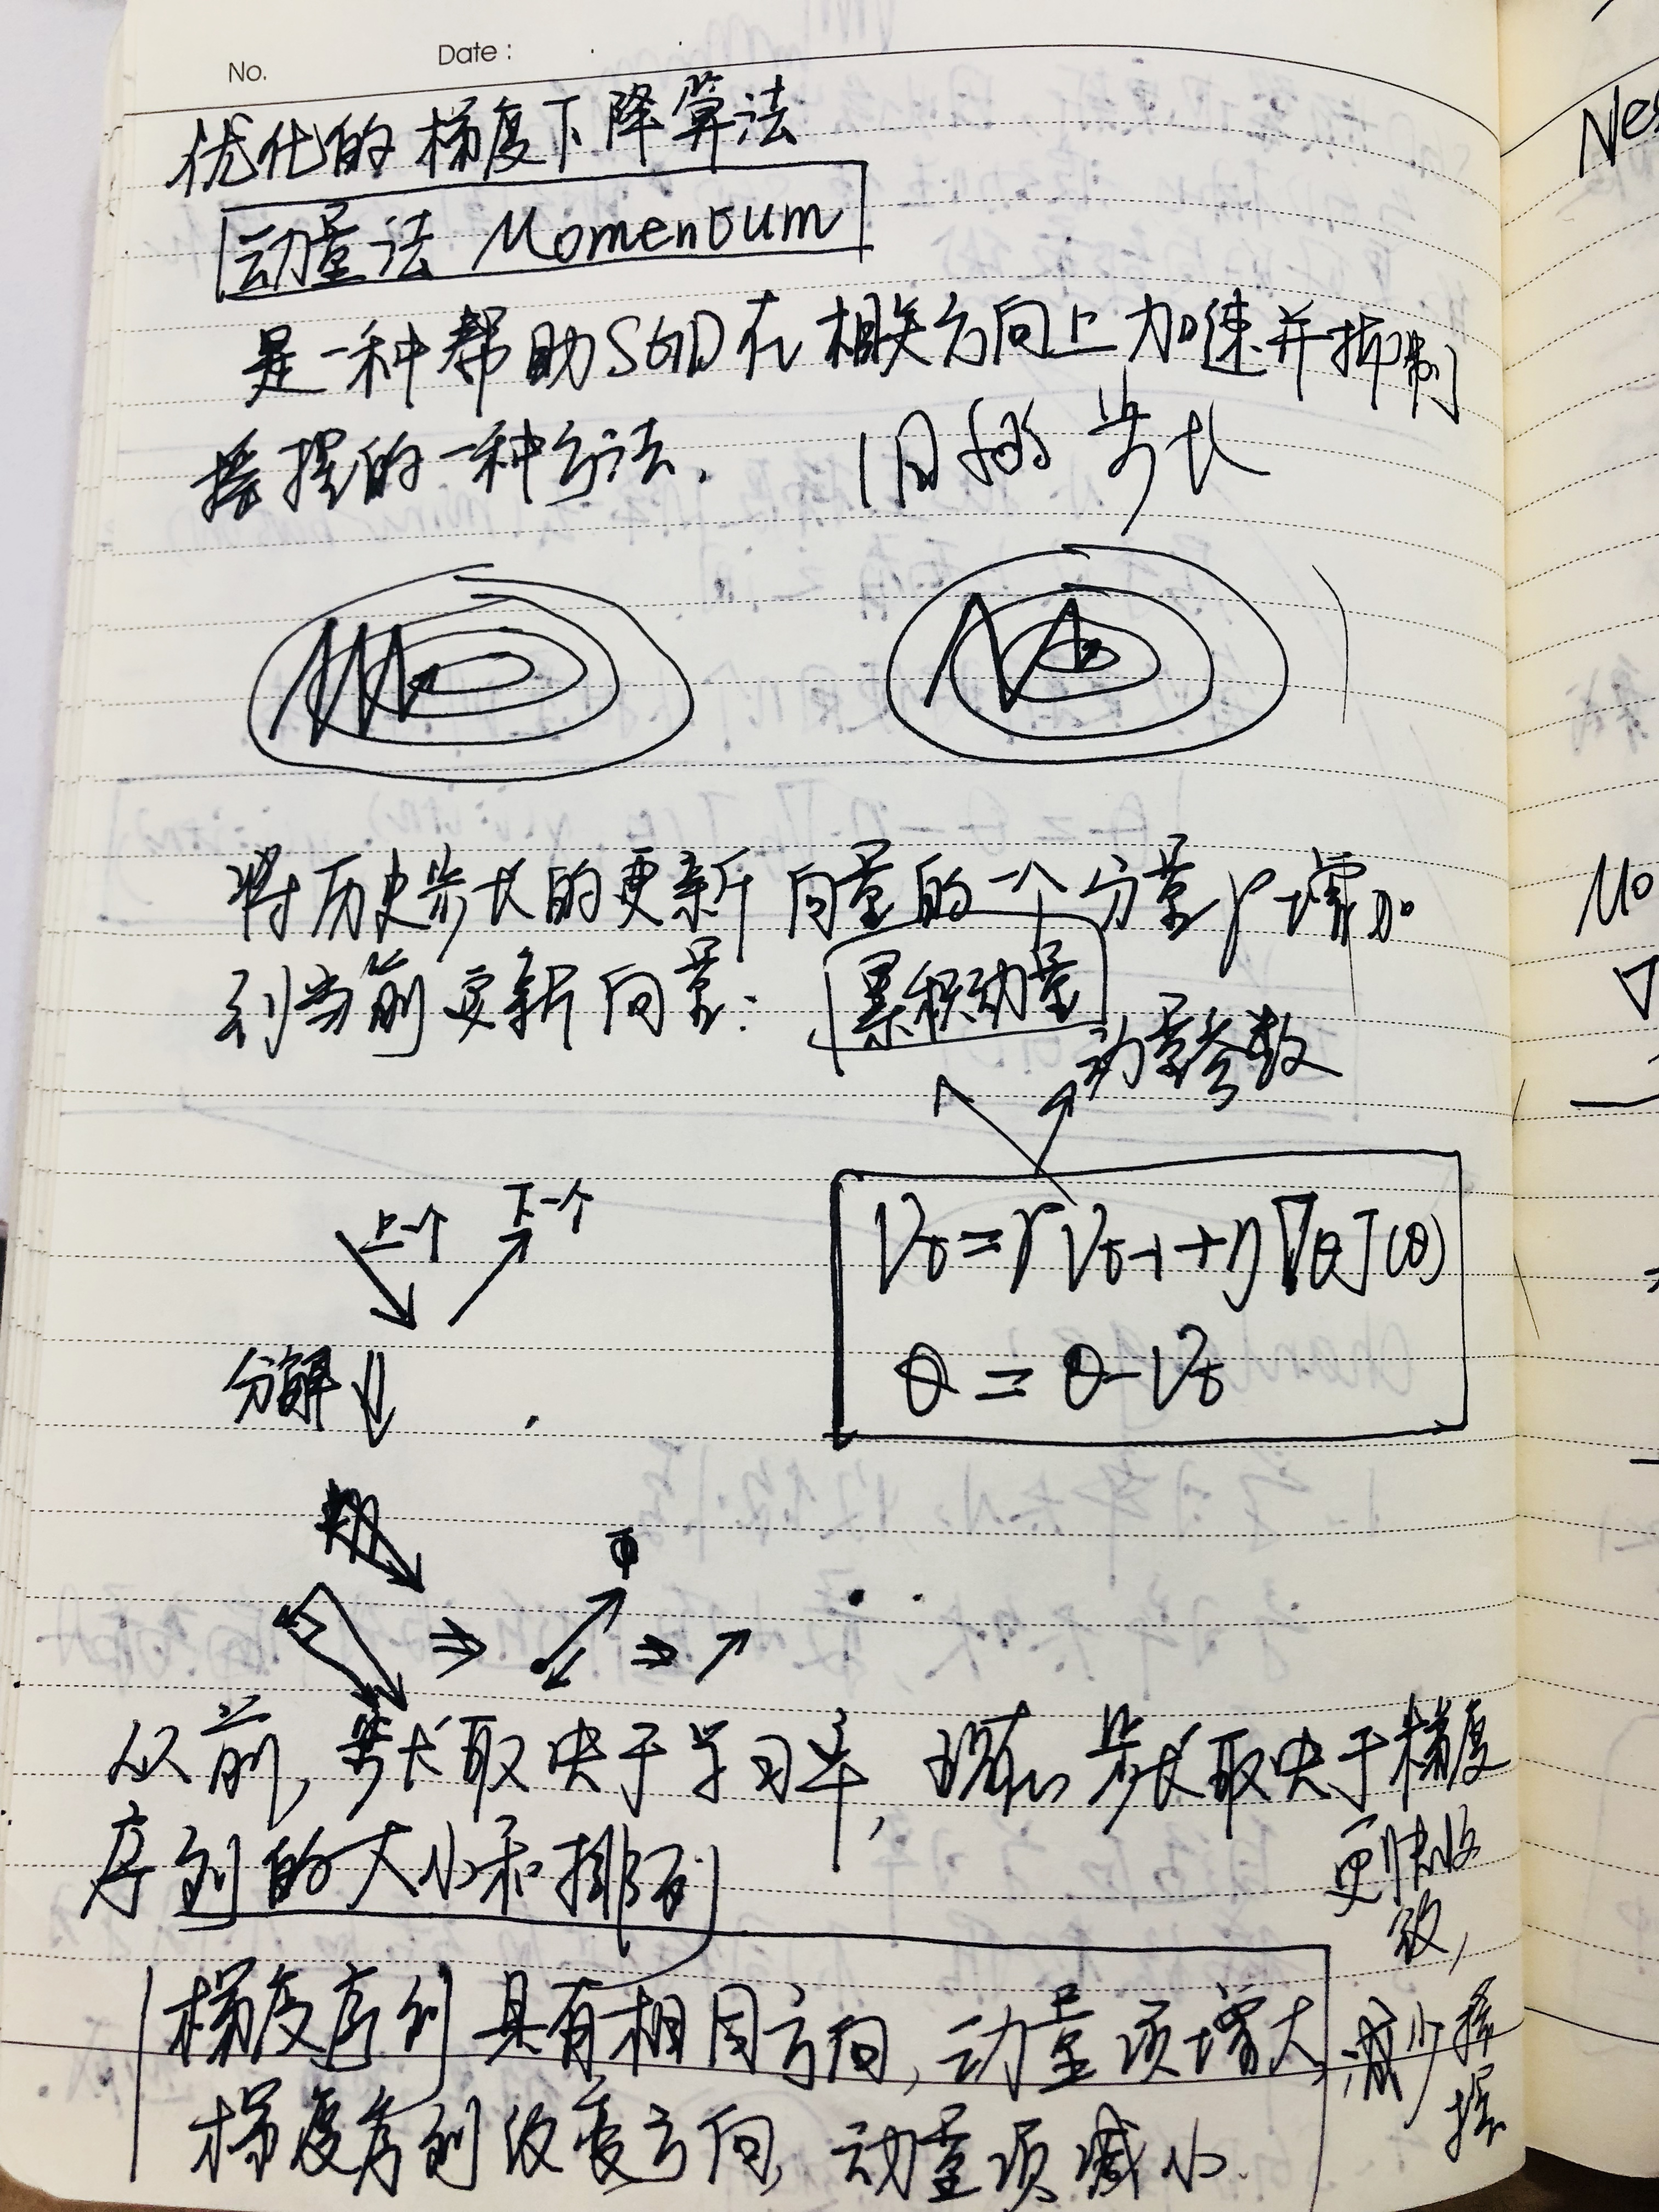 No.
Date :
优化的梯度下降算法
动量法 Momentum
是一种帮助SGD在相关方向上加速并抑制
摇摆的一种方法.
步长
将历史步长的更新向量的一个分量γ增加
到当前更新向量:
累积动量
动量参数
上一个
下一个
Vt=γVt-1+η∇θJ(θ)
θ=θ-Vt
分解
从前,步长取决于学习率,现在步长取决于梯度
序列的大小和排列
梯度序列具有相同方向,动量项增大
梯度序列改变方向,动量项减小.
更快收
敛,
减少摇
摆
Nes
Mo
∇